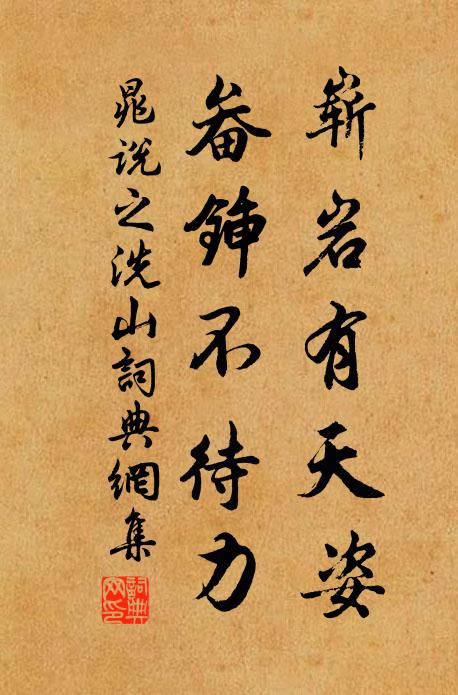 嶄岩有天姿
畚鍤不待力
晁說之洗山詞典網集
詞典网印